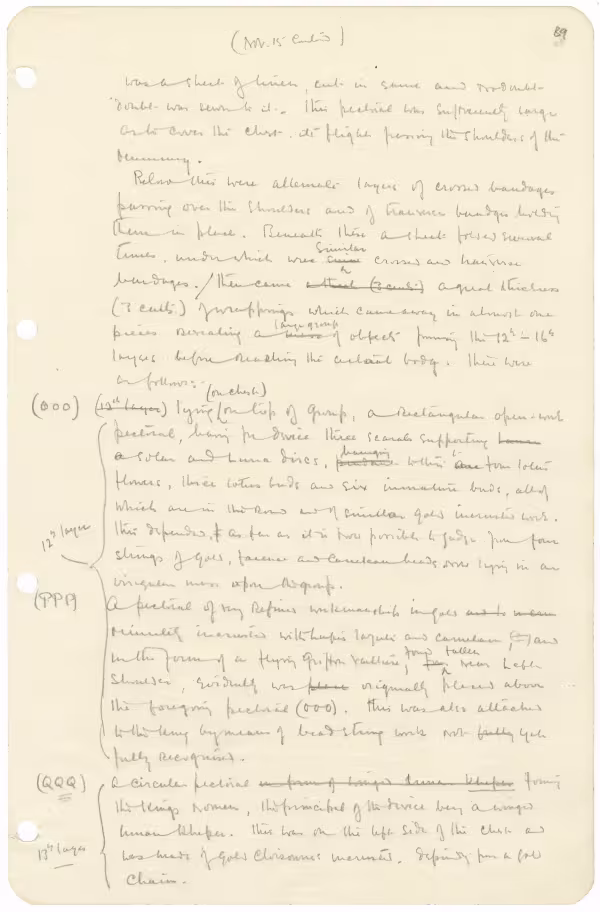 (Nov. 15 Contin)
89
was a sheet of linen, and in some and no doubt
doubt was sewn to it. This pectoral was sufficiently large
as to cover the chest. its flight passing the shoulders of the
mummy.
Below this were alternate layers of crossed bandages
passing over the shoulders and of transverse bandages holding
them in place. Beneath these a sheet folded several
times, under which were similar crossed and transverse
bandages. / Then came a sheet (3 cents.) a great thickness
(3 cents.) of wrappings which came away in almost one
pieces revealing a large group of objects forming the 12th - 16th
layers before reaching the actual body. These were
as follows:-
(OOO) (12th layer) lying (on chest) on top of group, a rectangular open-work
pectoral, having for device three scarabs supporting
a solar and lunar discs, hanging within four lotus
flowers, three lotus buds and six immature buds, all of
which are in the round and of similar gold incrusted work.
This depended, as far as it is now possible to judge from four
strings of gold, faience and carnelian beads now lying in an
irregular mass upon the group.
12th layer
(PPP) A pectoral of very refined workmanship in gold
minutely incrusted with lapis lazuli and carnelian, and
in the form of a flying griffon vulture, found fallen near left
shoulder, evidently was place originally placed above
the foregoing pectoral (OOO). This was also attached
to the king by means of bead string work not fully yet
fully recognised.
(QQQ) A circular pectoral in form of winged khepер forming
the king's nomen, the principal of the device being a winged
kheper. This was on the left side of the chest and
13th layer
was made of gold cloisonné incrusted. depending from a gold
chain.